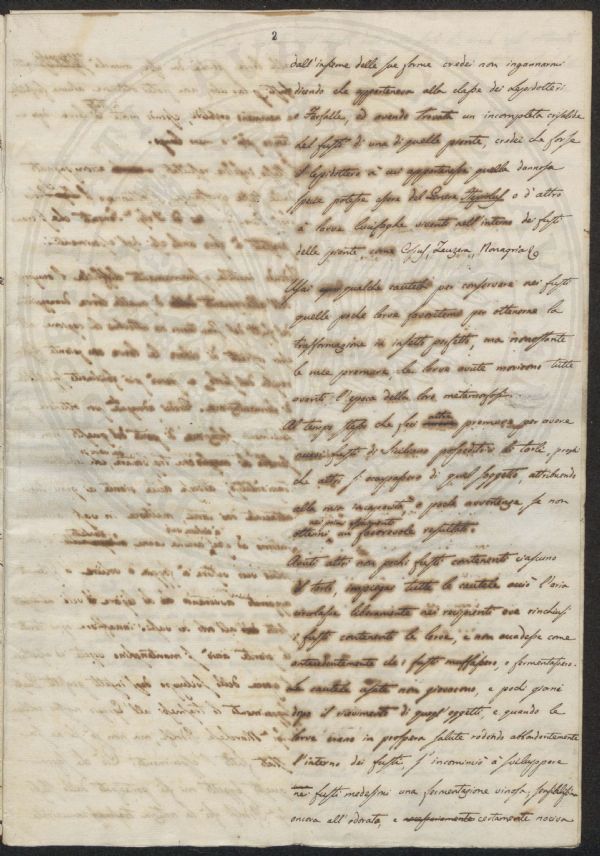 2
dall'insieme delle sue forme credei non ingannarmi
dicendo che apparteneva alla classe dei Lepidotteri
o Farfalle, ed avendo trovata un incompleta crisalide
nel fusto di una di quelle piante, credei che forse
il lepidottero a cui apparteneva quella dannosa
specie potesse essere del Genere o d'altro
a larve viventi nell'interno dei fusti
delle piante, come Cossus, Zeuzera, Nonagria &
Usai qualche cautela per conservare nei fusti
quelle poche larve favoritemi per ottenerne la
trasformazione in insetti perfetti, ma nonostante
le mie premure le larve avute morirono tutte
avanti l'epoca della loro metamorfosi.
Al tempo stesso che feci altre premure per avere
nuovi fusti di Siciliano posseditori di tarli, pregai
che altri si occupassero di quel soggetto, attribuendo
alla mia incapacità o poca avvertenza se non
ottenni un favorevole resultato.
Avuti altri non pochi fusti contenenti ciascuno
il tarlo, impiegai tutte le cautele acciò l'aria
circolasse liberamente nei recipienti ove rinchiusi
i fusti contenenti le larve, e non accadesse come
antecedentemente che i fusti muffassero, o fermentassero.
Le cautele usate non giovarono, e pochi giorni
dopo il ricevimento di quegl'oggetti, e quando le
larve erano in prospera salute rodendo abbondantemente
l'interno dei fusti, s'incominciò a sviluppare
nei fusti medesimi una fermentazione vinosa, sensibilissima
ancora all'odorato, e certamente nociva